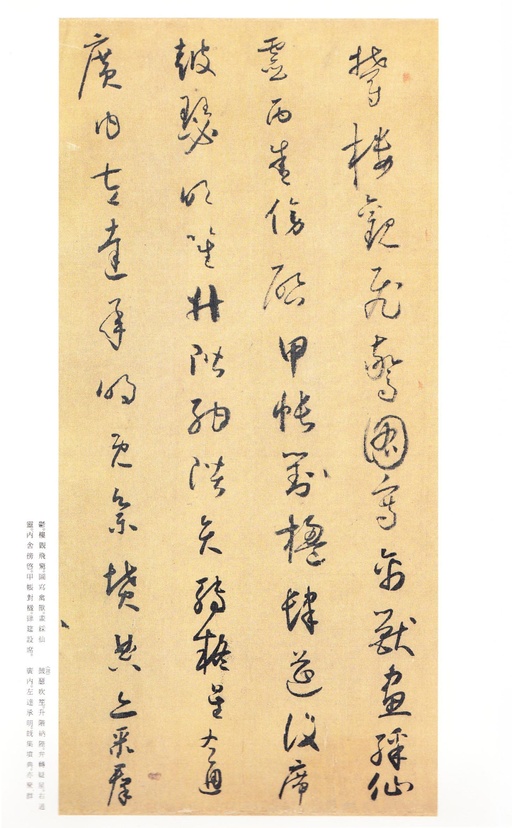 鬱樓觀飛驚圖寫禽獸畫綵仙
靈丙舍傍啓甲帳對楹肆筵設席
鼓瑟吹笙升階納陛弁轉疑星右通
廣內左達承明既集墳典亦聚群
鬱樓觀飛驚圖寫禽獸畫綵仙
靈丙舍傍啓甲帳對楹肆筵設席
鼓瑟吹笙升階納陛弁轉疑星右通
廣內左達承明既集墳典亦聚群